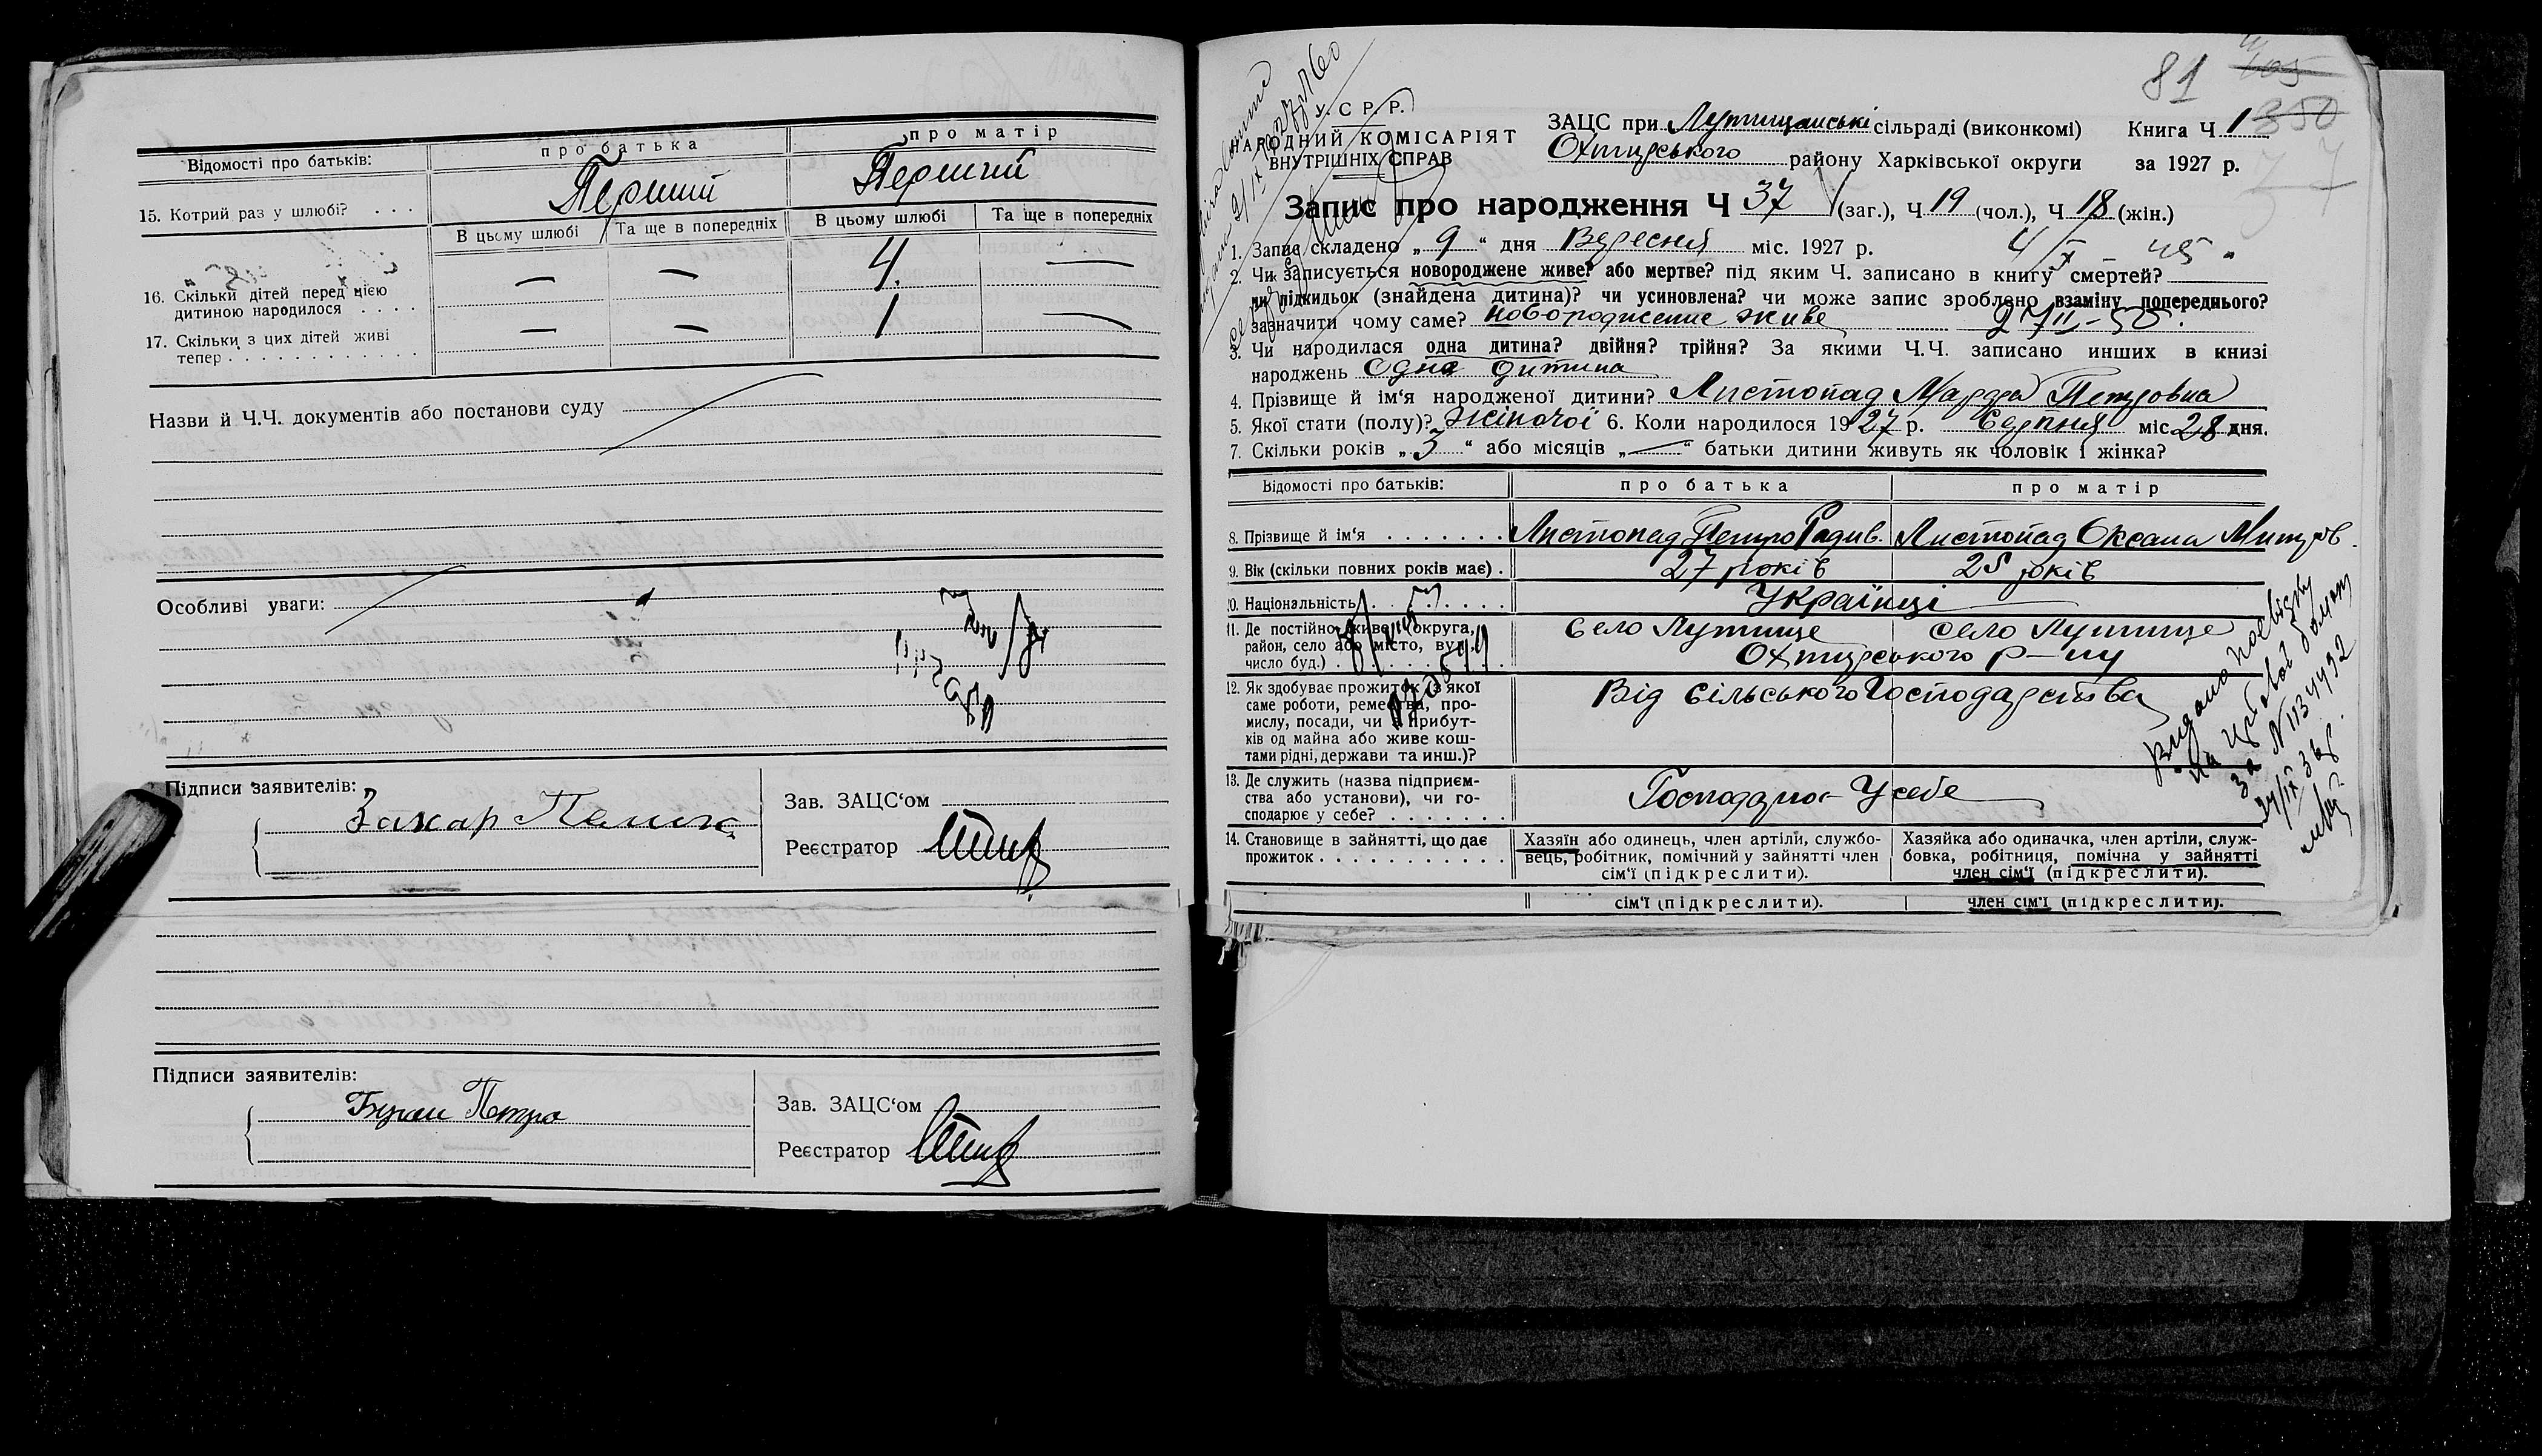 Відомості про батьків:
про батька
про матір
15. Котрий раз у шлюбі? . . .
Перший
Перший
В цьому шлюбі
Та ще в попередніх
В цьому шлюбі
Та ще в попередніх
16. Скільки дітей перед цією
дитиною народилося . . . .
—
—
4.
—
17. Скільки з цих дітей живі
тепер . . . . . . . . . . . .
—
—
1
—
Назви й Ч.Ч. документів або постанови суду
Особливі уваги:
Підписи заявителів:
Захар
Зав. ЗАЦС'ом
Реєстратор
Підписи заявителів:
Петро
Зав. ЗАЦС'ом
Реєстратор
81
105
350
У. С. Р. Р.
НАРОДНИЙ КОМІСАРІЯТ
ВНУТРІШНІХ СПРАВ
ЗАЦС при Лутищанські сільраді (виконкомі) Книга Ч 1
Охтирського району Харківської округи за 1927 р.
37
Запис про народження Ч 37 (заг.), Ч 19 (чол.), Ч 18 (жін.)
1. Запис складено „ 9 “ дня Вересня міс. 1927 р.
4/X – 45
2. Чи записується новороджене живе? або мертве? під яким Ч. записано в книгу смертей?
чи підкидьок (знайдена дитина)? чи усиновлена? чи може запис зроблено взаміну попереднього?
зазначити чому саме? новороджение живе
27 II – 50.
3. Чи народилася одна дитина? двійня? трійня? За якими Ч.Ч. записано инших в книзі
народжень Одна дитина
4. Прізвище й ім'я народженої дитини? Листопад Марфа Петровна
5. Якої стати (полу)? Жіночої 6. Коли народилося 1927 р. Серпня міс. 28 дня.
7. Скільки років „ 3 “ або місяців „ — “ батьки дитини живуть як чоловік і жінка?
Відомості про батьків:
про батька
про матір
8. Прізвище й ім'я . . . . . . .
Листопад Петро Радив.
Листопад Оксана Митров.
9. Вік (скільки повних років має) .
27 років
25 років
10. Національність . . . . . . . .
Українці
11. Де постійно живе (округа,
район, село або місто, вул.,
число буд.) . . . . . . . . . .
село Лутище
село Лутище
Охтирського р-ну
12. Як здобуває прожиток (з якої
саме роботи, ремества, про-
мислу, посади, чи з прибут-
ків од майна або живе кош-
тами рідні, держави та инш.)?
Від сільського Господарства
13. Де служить (назва підприєм-
ства або установи), чи го-
сподарює у себе? . . . . . . .
Господарює У себе
14. Становище в зайнятті, що дає
прожиток . . . . . . . . . . .
Хазяїн або одинець, член артілі, службо-
вець, робітник, помічний у зайнятті член
сім'ї (підкреслити).
Хазяйка або одиначка, член артіли, служ-
бовка, робітниця, помічна у зайнятті
член сім'ї (підкреслити).
Видано посвідку
за N 1134492
сім'ї (підкреслити).
член сім'ї (підкреслити).